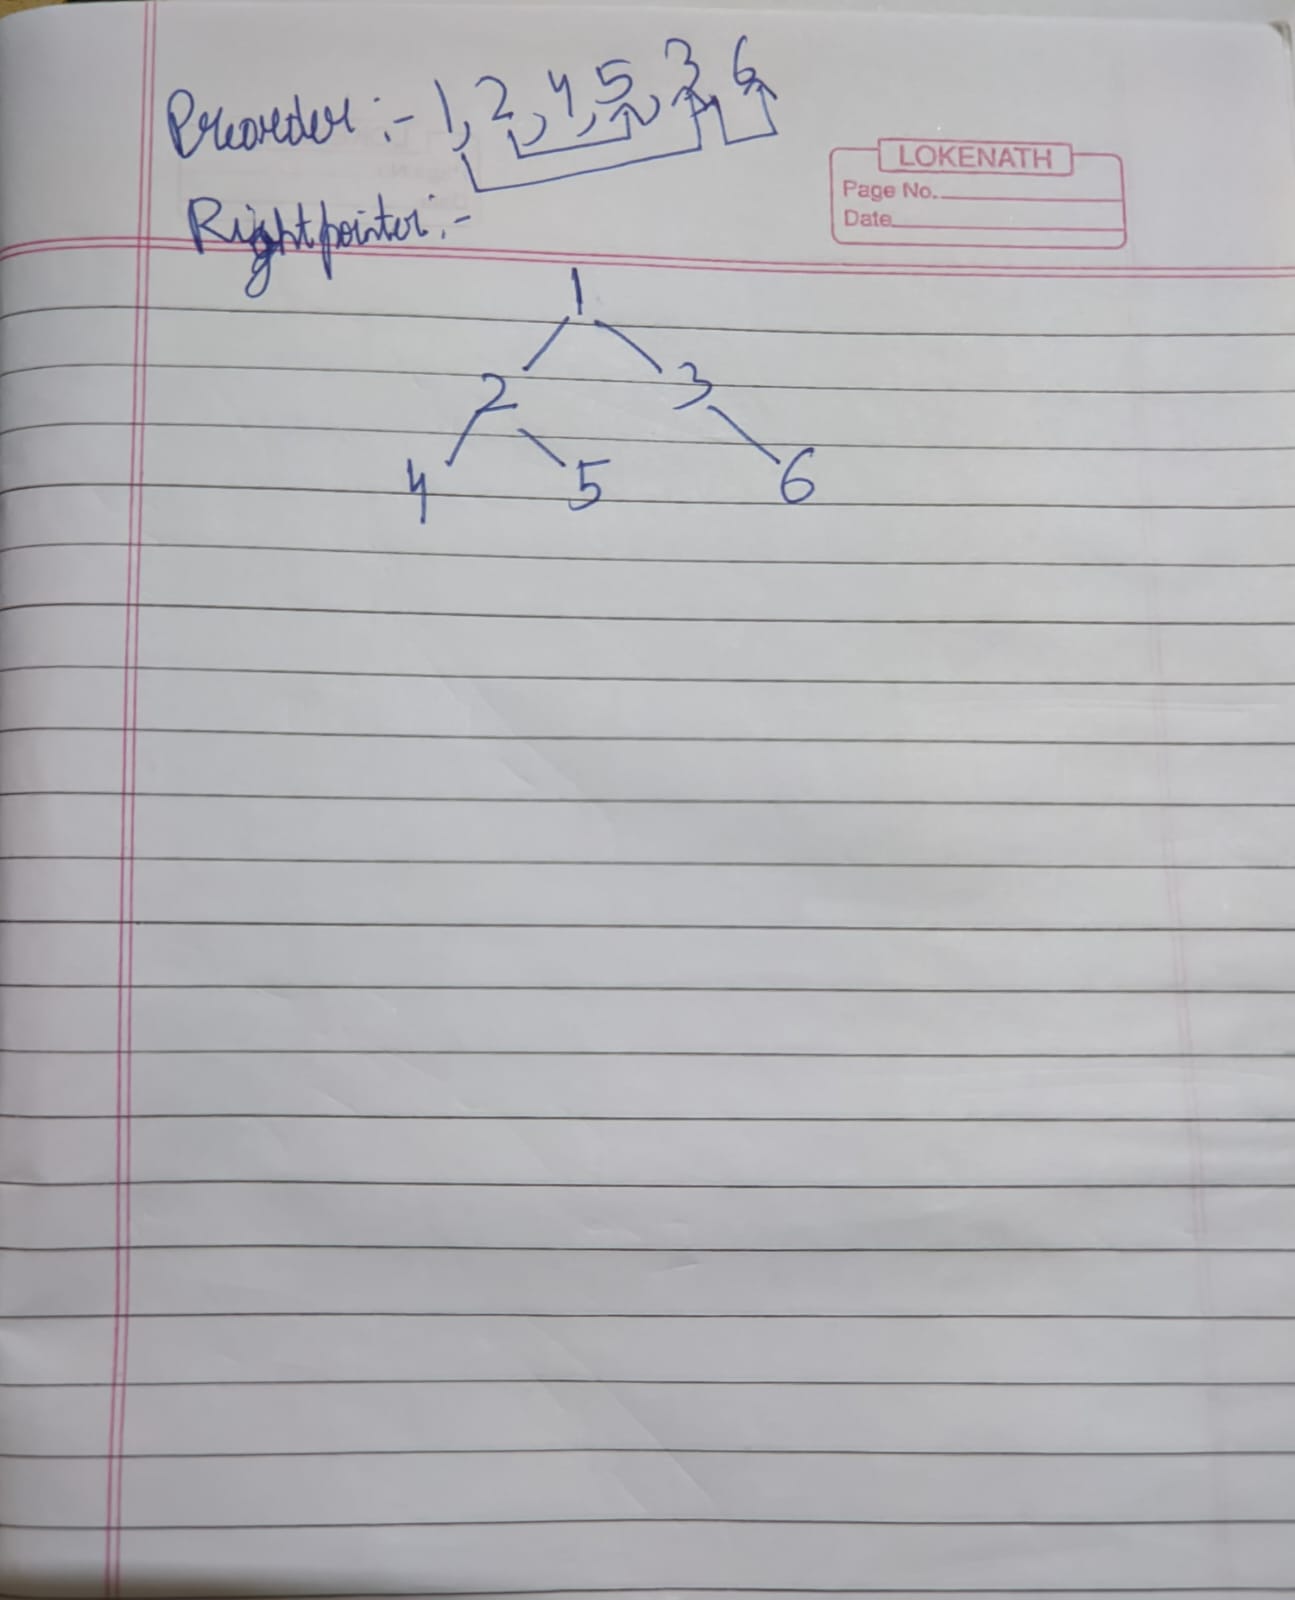 Preorder :- 1, 2, 4, 5, 3, 6
Rightpointer :-
LOKENATH
Page No.
Date
1
2 3
4 5 6